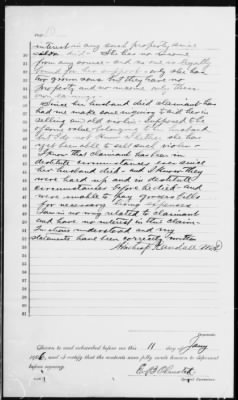 interest in any such property since
soldier died. She has no income
from any source - and no one is legally
bound for her support - only she has
two grown sons but they have no
property and no income only their
own earnings.
Since her husband died claimant has
had me make some inquiry to help her in
selling an old violin - supposed to be
of some value belonging to her husband
but I do not know whether she has
yet been able to sell such violin -
I know that claimant has been in
destitute circumstances ever since
her husband died - and I know they
were hard up and in destitute
circumstances before he died - and
were unable to pay grocery bills
for necessary living expenses
I am in no way related to claimant
and have no interest in this claim.
Questions understood and my
statements have been correctly written
Kendall M.D.
Deponent.
Sworn to and subscribed before me this 11 day of Jany
, and I certify that the contents were fully made known to deponent
before signing.
Special Examiner.